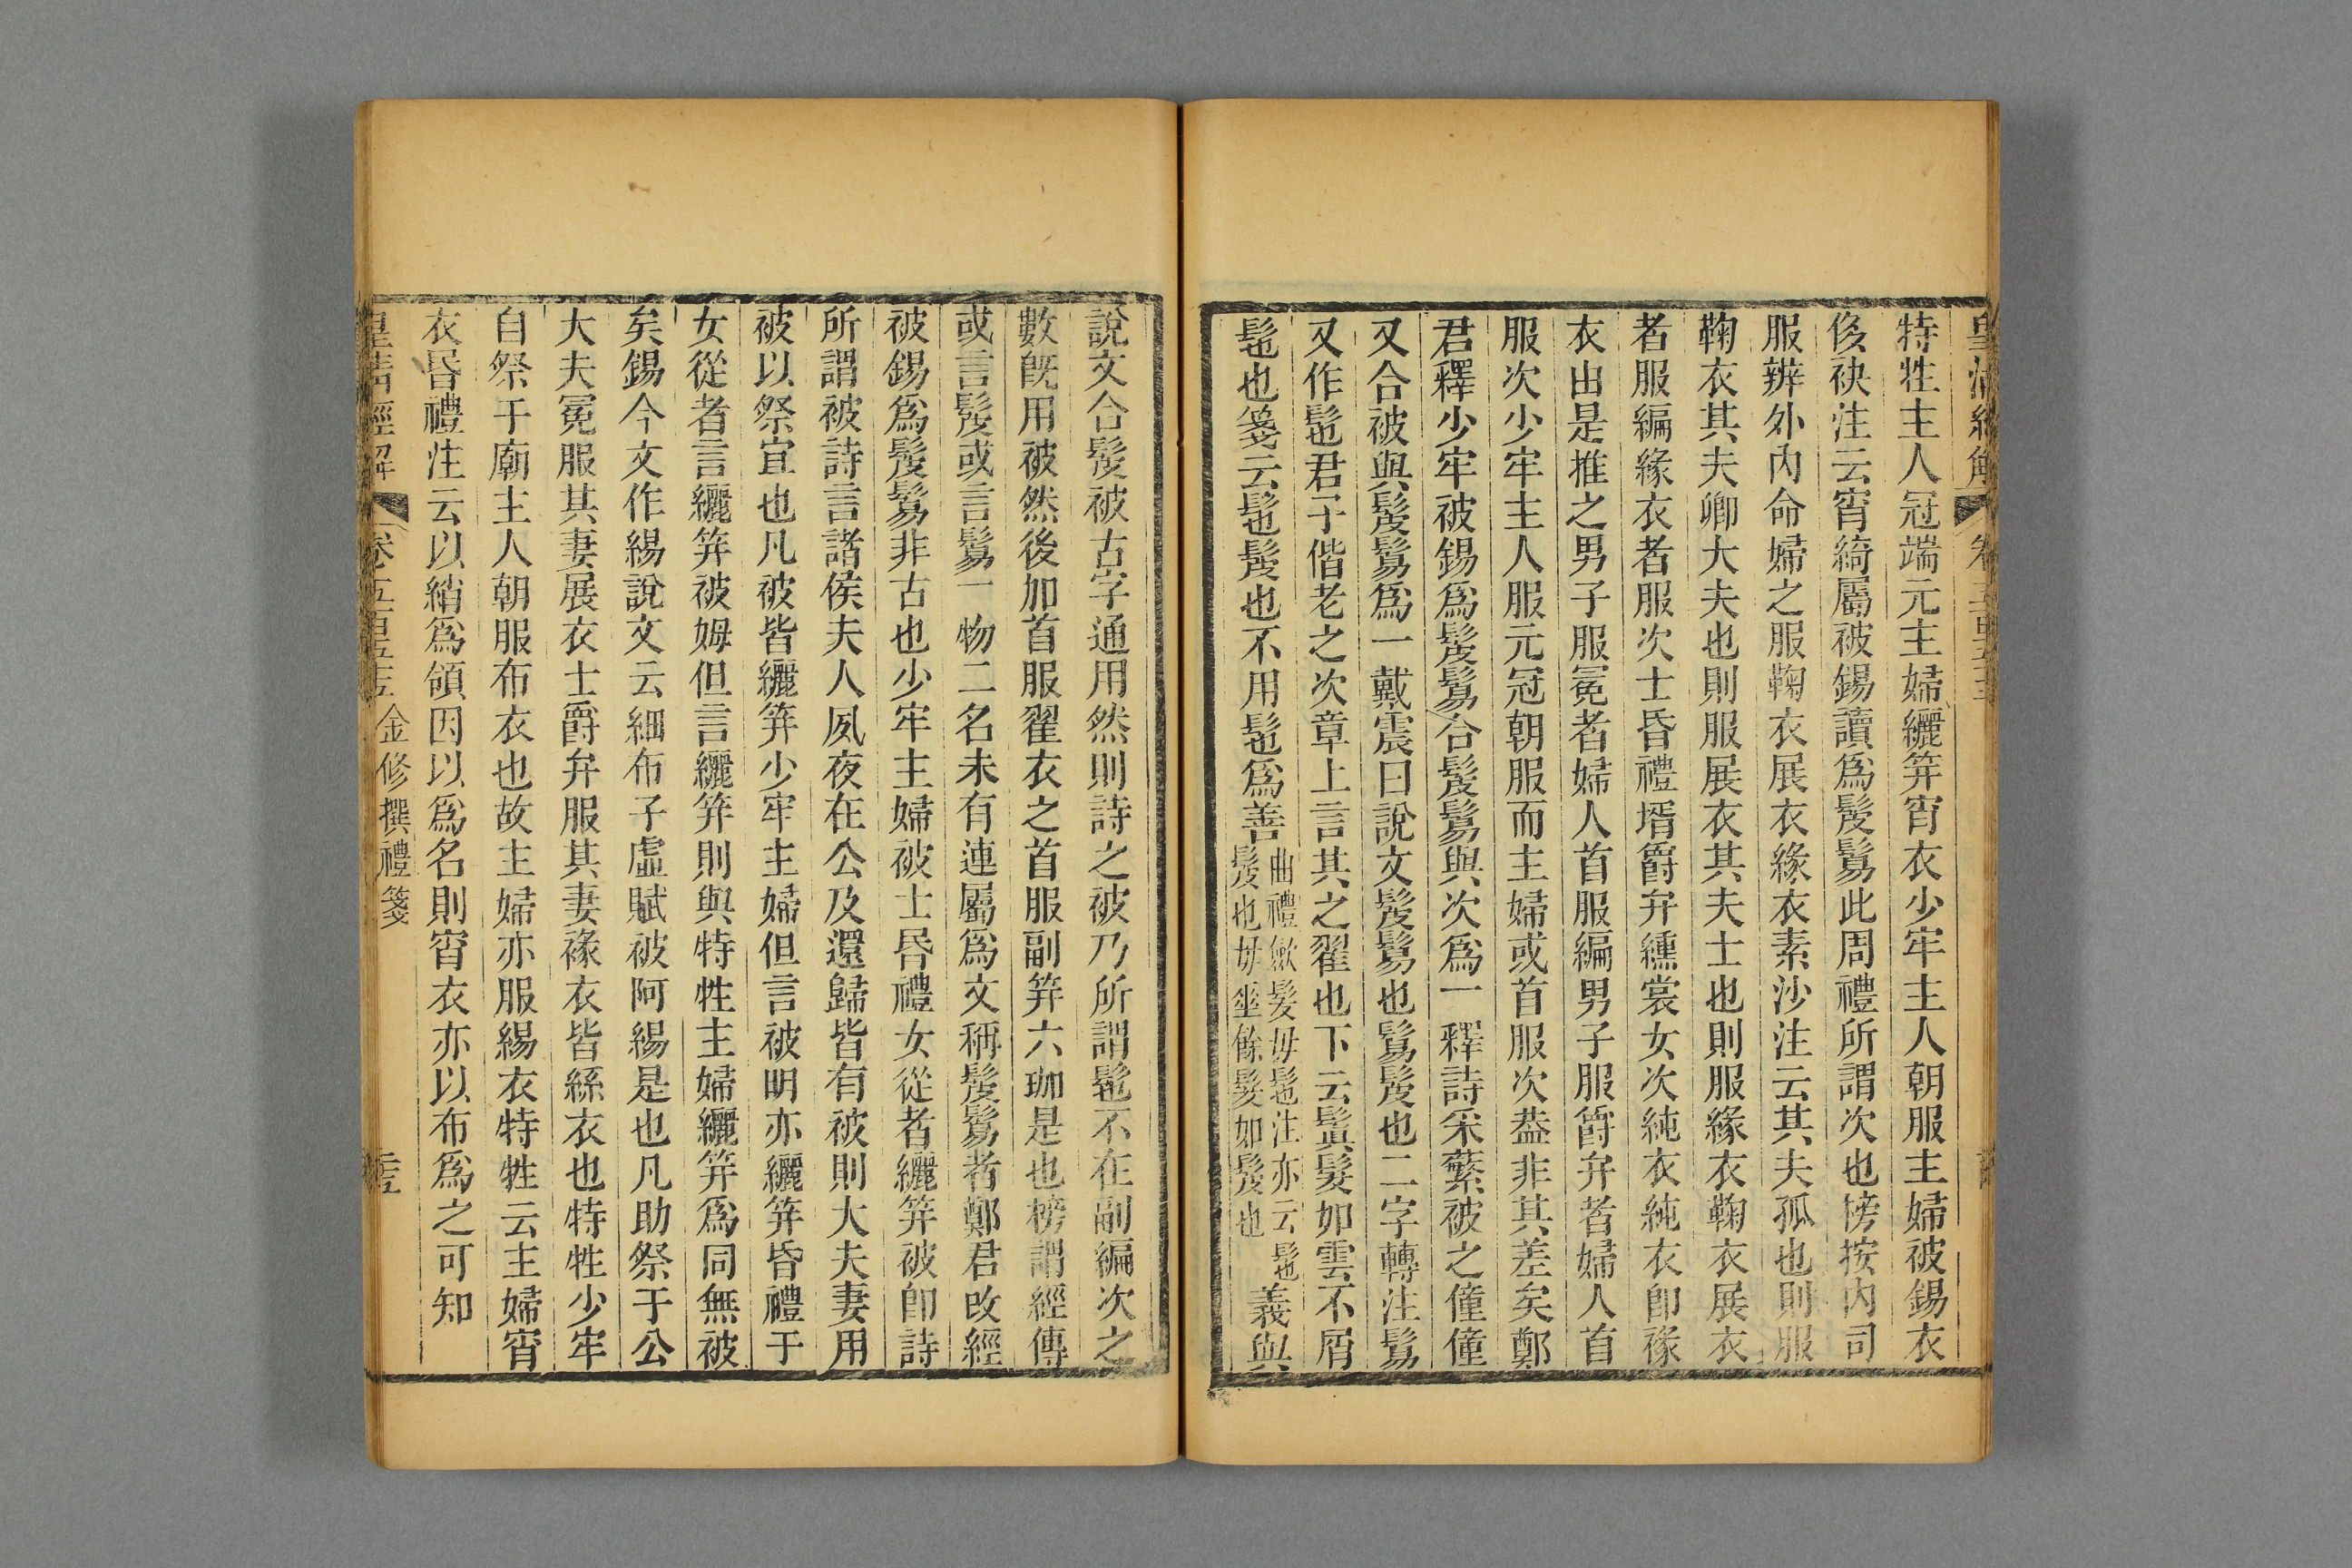 特牲主人冠端元主婦纚笄宵衣少牢主人朝服主婦被錫衣
侈袂注云宵綺屬被錫讀爲髲鬄此周禮所謂次也榜按內司
服辨外內命婦之服鞠衣展衣緣衣素沙注云其夫孤也則服
鞠衣其夫卿大夫也則服展衣其夫士也則服緣衣鞠衣展衣
者服編緣衣者服次士昏禮壻爵弁纁裳女次純衣純衣卽褖
衣由是推之男子服冕者婦人首服編男子服爵弁者婦人首
服次少牢主人服元冠朝服而主婦或首服次葢非其差矣鄭
君釋少牢被錫爲髲鬄合髲鬄與次爲一釋詩采蘩被之僮僮
又合被與髲鬄爲一戴震曰說文髲鬄也鬄髲也二字轉注鬄
又作髢君子偕老之次章上言其之翟也下云鬒髮如雲不屑
髢也箋云髢髲也不用髢爲善曲禮斂髮毋髢注亦云髢髲也毋垂餘髮如髲也義與
說文合髲被古字通用然則詩之被乃所謂髢不在副編次之
數旣用被然後加首服翟衣之首服副笄六珈是也榜謂經傳
或言髲或言鬄一物二名未有連屬爲文稱髲鬄者鄭君改經
被錫爲髲鬄非古也少牢主婦被士昏禮女從者纚笄被卽詩
所謂被詩言諸侯夫人夙夜在公及還歸皆有被則大夫妻用
被以祭宜也凡被皆纚笄少牢主婦但言被明亦纚笄昏禮于
女從者言纚笄被姆但言纚笄則與特牲主婦纚笄爲同無被
矣錫今文作緆說文云細布子虛賦被阿緆是也凡助祭于公
大夫冕服其妻展衣士爵弁服其妻褖衣皆絲衣也特牲少牢
自祭于廟主人朝服布衣也故主婦亦服緆衣特牲云主婦宵
衣昏禮注云以綃爲領因以爲名則宵衣亦以布爲之可知
皇淸經解 金修撰禮箋